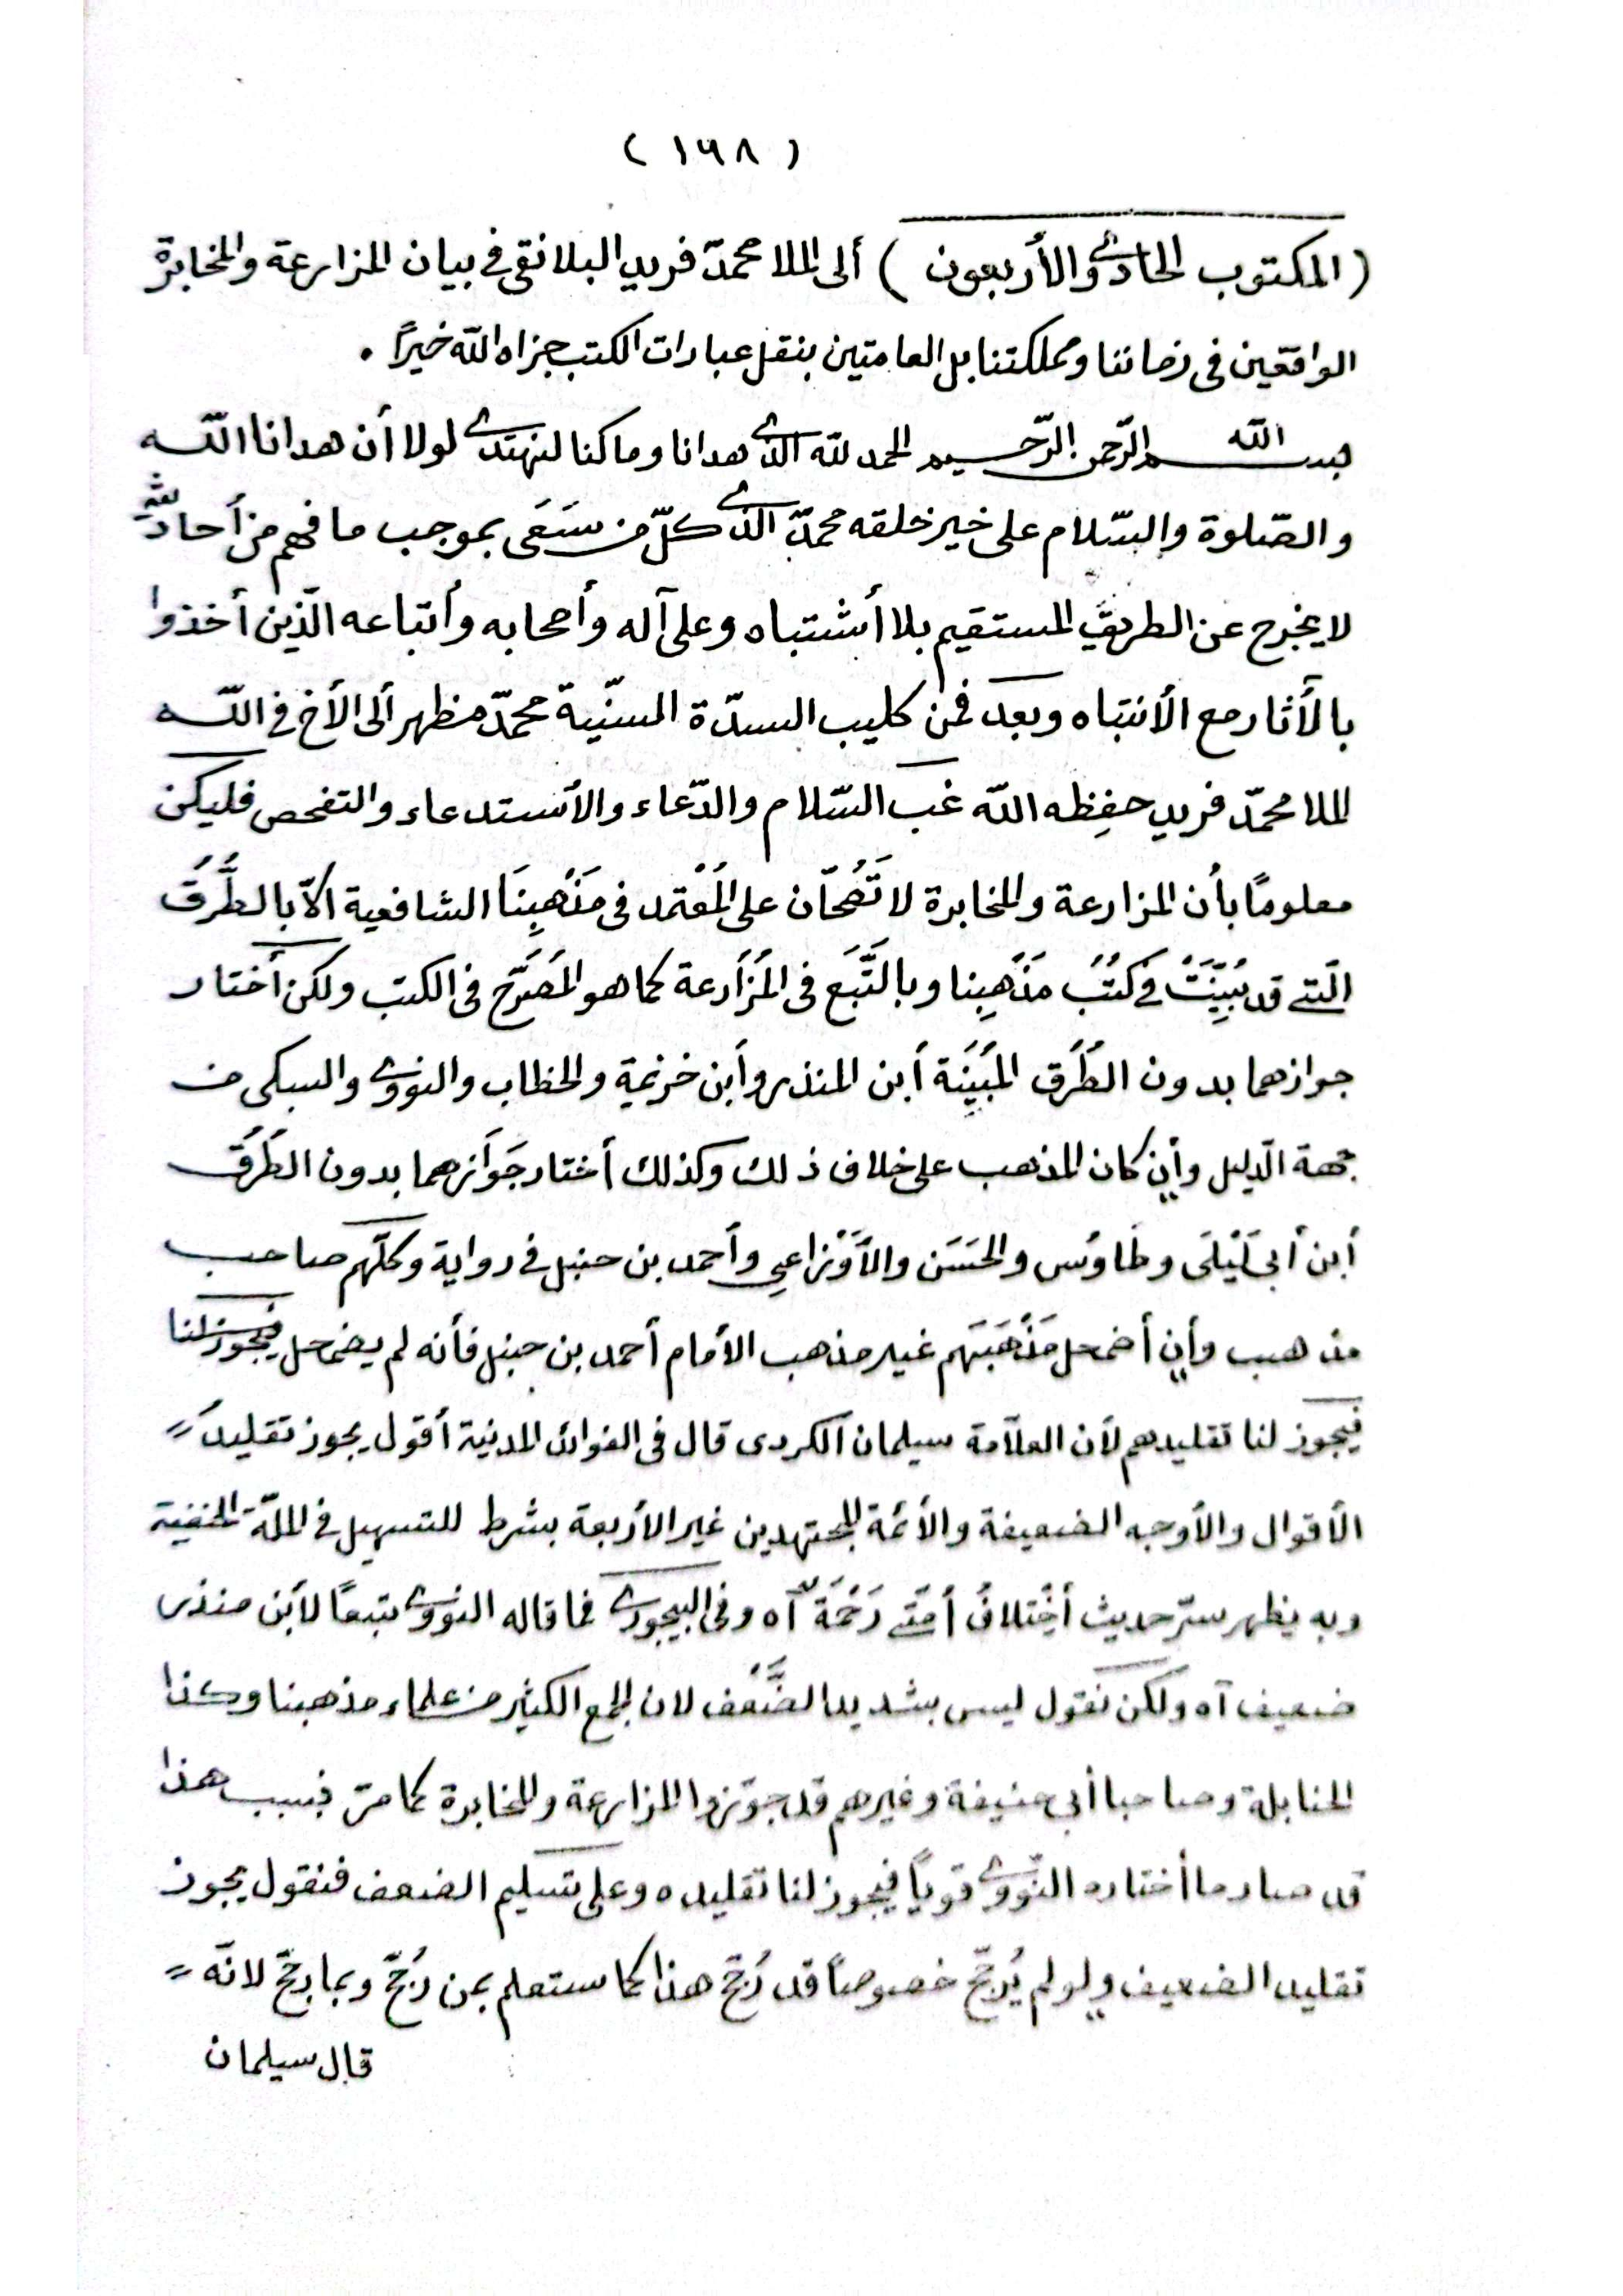 ( ١٦٨ )
( المكتوب الحادي والأربعون ) ألى الملا محمّد فريد البلانقى فى بيان المزارعة والمخابرة
الواقعين فى زماننا ومملكتنا بل العامتين بنقل عبارات الكتب جزاه الله خيراً .
بسم الله الرّحمن الرّحيم الحمد لله الذي هدانا وما كنا لنهتدي لولا أن هدانا اللّه
والصّلوة والسّلام على خير خلقه محمّد الذي كلّ من سَعَى بموجب ما فهم من أحاديثه
لا يخرج عن الطريق المستقيم بلا أشتباه وعلى آله وأصحابه وأتباعه الّذين أخذوا
بالأثار مع الأنتباه وبعد فمن كليب السدّة السنّية محمّد مظهر ألى الأخ فى اللّه
الملا محمّد فريد حفِظه الله غب السّلام والدّعاء والأستدعاء والتفحص فليكن
معلومًا بأن المزارعة والمخابرة لا تَصُحّان على المُعْتمد فى مَذْهبِنَا الشافعية الاّ بالطُّرُق
الّتى قد بُيِّنَتْ فى كتُبُ مَذْهِبِنا وبالتَّبَع فى المُزَارعة كما هو المُصَرَّح فى الكتب ولكن أختار
جوازهما بدون الطُرُق المُبَيَنَة أبن المنذر وأبن خزيمة والخطاب والنووي والسبكى من
جهة الدّليل وأن كان المذهب على خلاف ذلك وكذلك أختار جَوَازهما بدون الطُرُق
أبن أبى لَيْلَى وطَاوُس والحَسَن والأوْزاعى وأحمد بن حنبل فى رواية وكلّهم صاحب
مذهب وأن أضمحل مَذْهَبَهم غير مذهب الأمام أحمد بن حنبل فأنه لم يضمحل فيجوز لنا
فيجوز لنا تقليدهم لأن العلاّمة سيلمان الكردى قال فى الفوائد المدنية أقول يجوز تقليد
الأقوال والأوجه الضعيفة والأئمة المجتهدين غير الأربعة بشرط للتسهيل فى الملّة الحنفية
وبه يظهر سرّ حديث أخْتلافُ أمّتى رَحْمَةٌ آه وفى البيجوري فما قاله النووي تبعًا لأبن منذر
ضعيف آه ولكن نقول ليس بشديد الضَّعْف لان الجمع الكثير من علماء مذهبنا وكذا
الحنابلة وصاحبا أبى حنيفة وغيرهم قد جوّزوا المزارعة والمخابرة كما مرّ فبسبب هذا
قد صار ما أختاره النّووي قويًا فيجوز لنا تقليده وعلى تسليم الضعف فنقول يجوز
تقليد الضعيف ولو لم يُرجّح خصوصاً قد رُجّح هذا كما ستعلم بمن رُجّح وبما رجّح لانّه
قال سيلمان